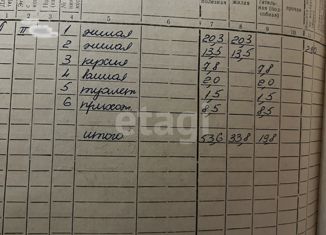 полезная жилая
прочая
1 2 3 4 5 6 7 8 9 10
II 1 жилая 20,3 20,3
2 жилая 13,5 13,5
3 кухня 7,8 7,8
4 ванная 2,0 2,0
5 туалет 1,5 1,5
6 прихож. 8,5 8,5
итого 53,6 33,8 19,8
etagi